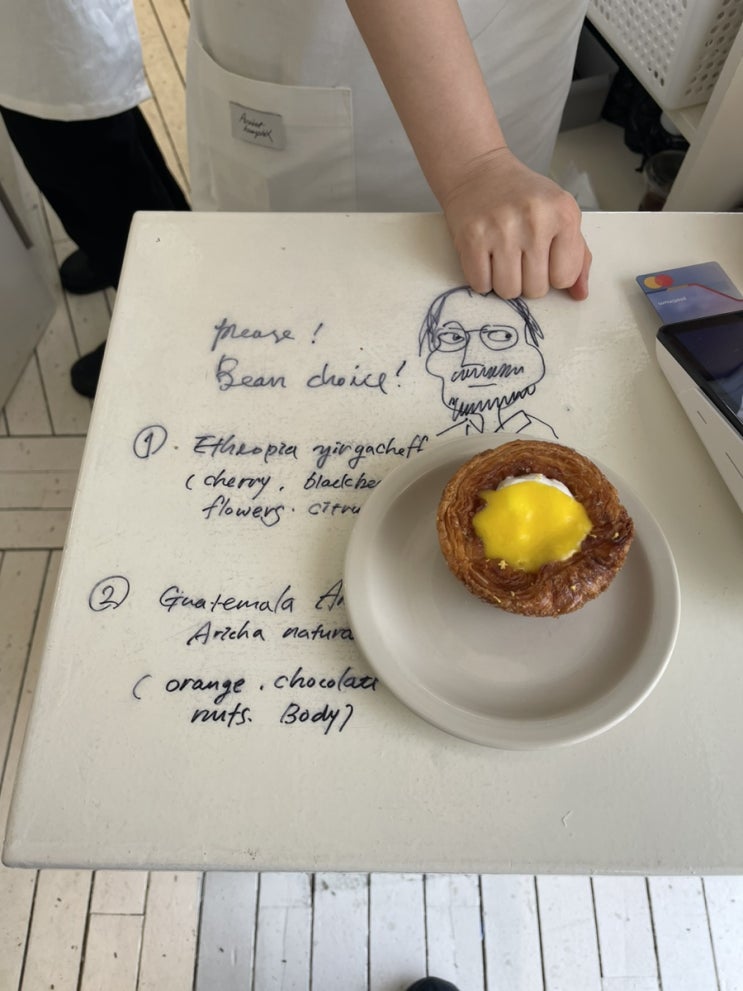 please !
Bean choice!
① . Etheopia yirgacheff
( cherry . blackbe
flowers . citru
② Guatemala An
Aricha natura
( orange . chocolate
nuts. Body)